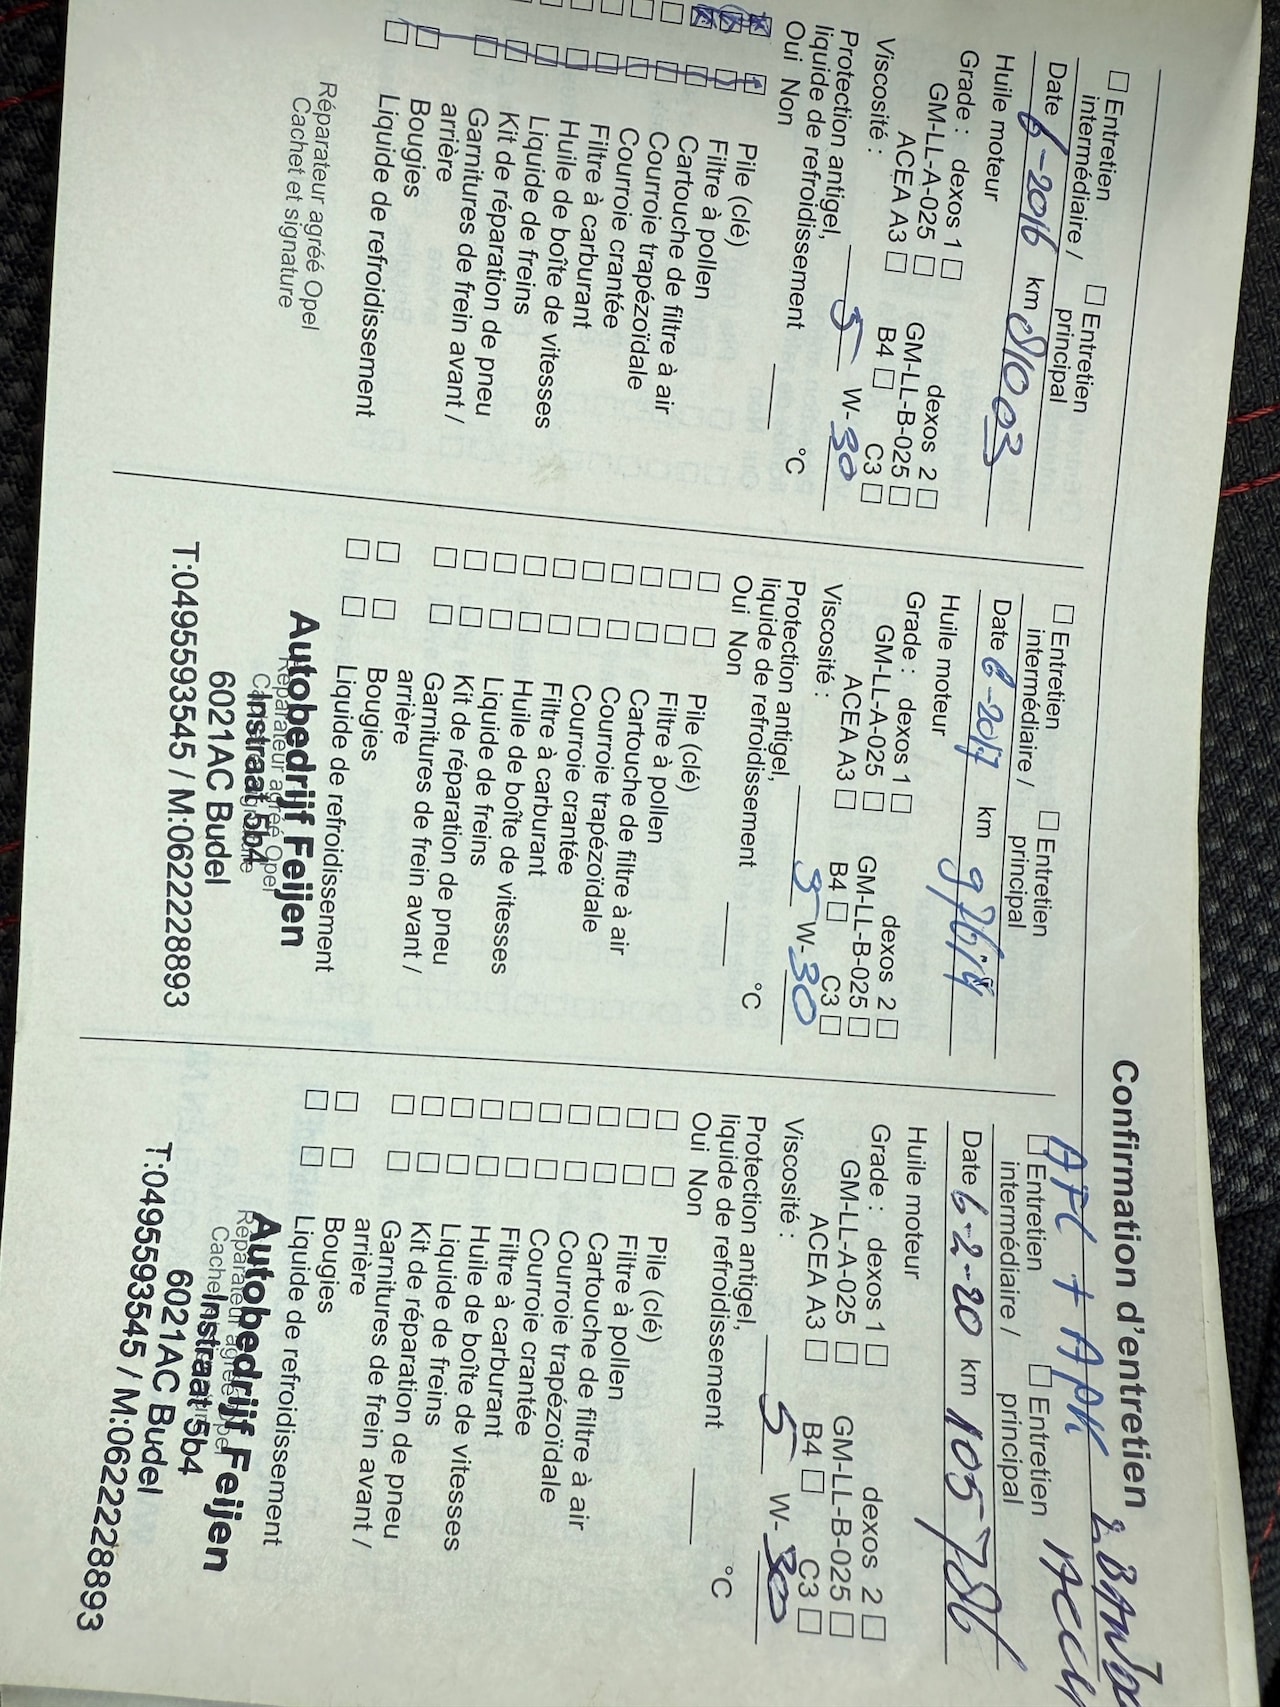 Confirmation d'entretien
Entretien intermédiaire /
Entretien principal
Date 6-2016 km 81003
Huile moteur
Grade : dexos 1 dexos 2
GM-LL-A-025 GM-LL-B-025
Viscosité : ACEA A3 B4 C3
5 W-30
Protection antigel,
liquide de refroidissement °C
Oui Non
Pile (clé)
Filtre à pollen
Cartouche de filtre à air
Courroie trapézoïdale
Courroie crantée
Filtre à carburant
Huile de boîte de vitesses
Liquide de freins
Kit de réparation de pneu
Garnitures de frein avant /
arrière
Bougies
Liquide de refroidissement
Réparateur agréé Opel
Cachet et signature
Entretien intermédiaire /
Entretien principal
Date 6-2017 km
Huile moteur
Grade : dexos 1 dexos 2
GM-LL-A-025 GM-LL-B-025
Viscosité : ACEA A3 B4 C3
5 W-30
Protection antigel,
liquide de refroidissement °C
Oui Non
Pile (clé)
Filtre à pollen
Cartouche de filtre à air
Courroie trapézoïdale
Courroie crantée
Filtre à carburant
Huile de boîte de vitesses
Liquide de freins
Kit de réparation de pneu
Garnitures de frein avant /
arrière
Bougies
Liquide de refroidissement
Réparateur agréé Opel
Autobedrijf Feijen
Instraat 5b4
6021AC Budel
T:0495593545 / M:0622228893
+ APK 2 BAND
Entretien intermédiaire /
Entretien principal
Date 6-2-20 km 105786
Huile moteur
Grade : dexos 1 dexos 2
GM-LL-A-025 GM-LL-B-025
Viscosité : ACEA A3 B4 C3
5 W-30
Protection antigel,
liquide de refroidissement °C
Oui Non
Pile (clé)
Filtre à pollen
Cartouche de filtre à air
Courroie trapézoïdale
Courroie crantée
Filtre à carburant
Huile de boîte de vitesses
Liquide de freins
Kit de réparation de pneu
Garnitures de frein avant /
arrière
Bougies
Liquide de refroidissement
Réparateur agréé Opel
Autobedrijf Feijen
Instraat 5b4
6021AC Budel
T:0495593545 / M:0622228893